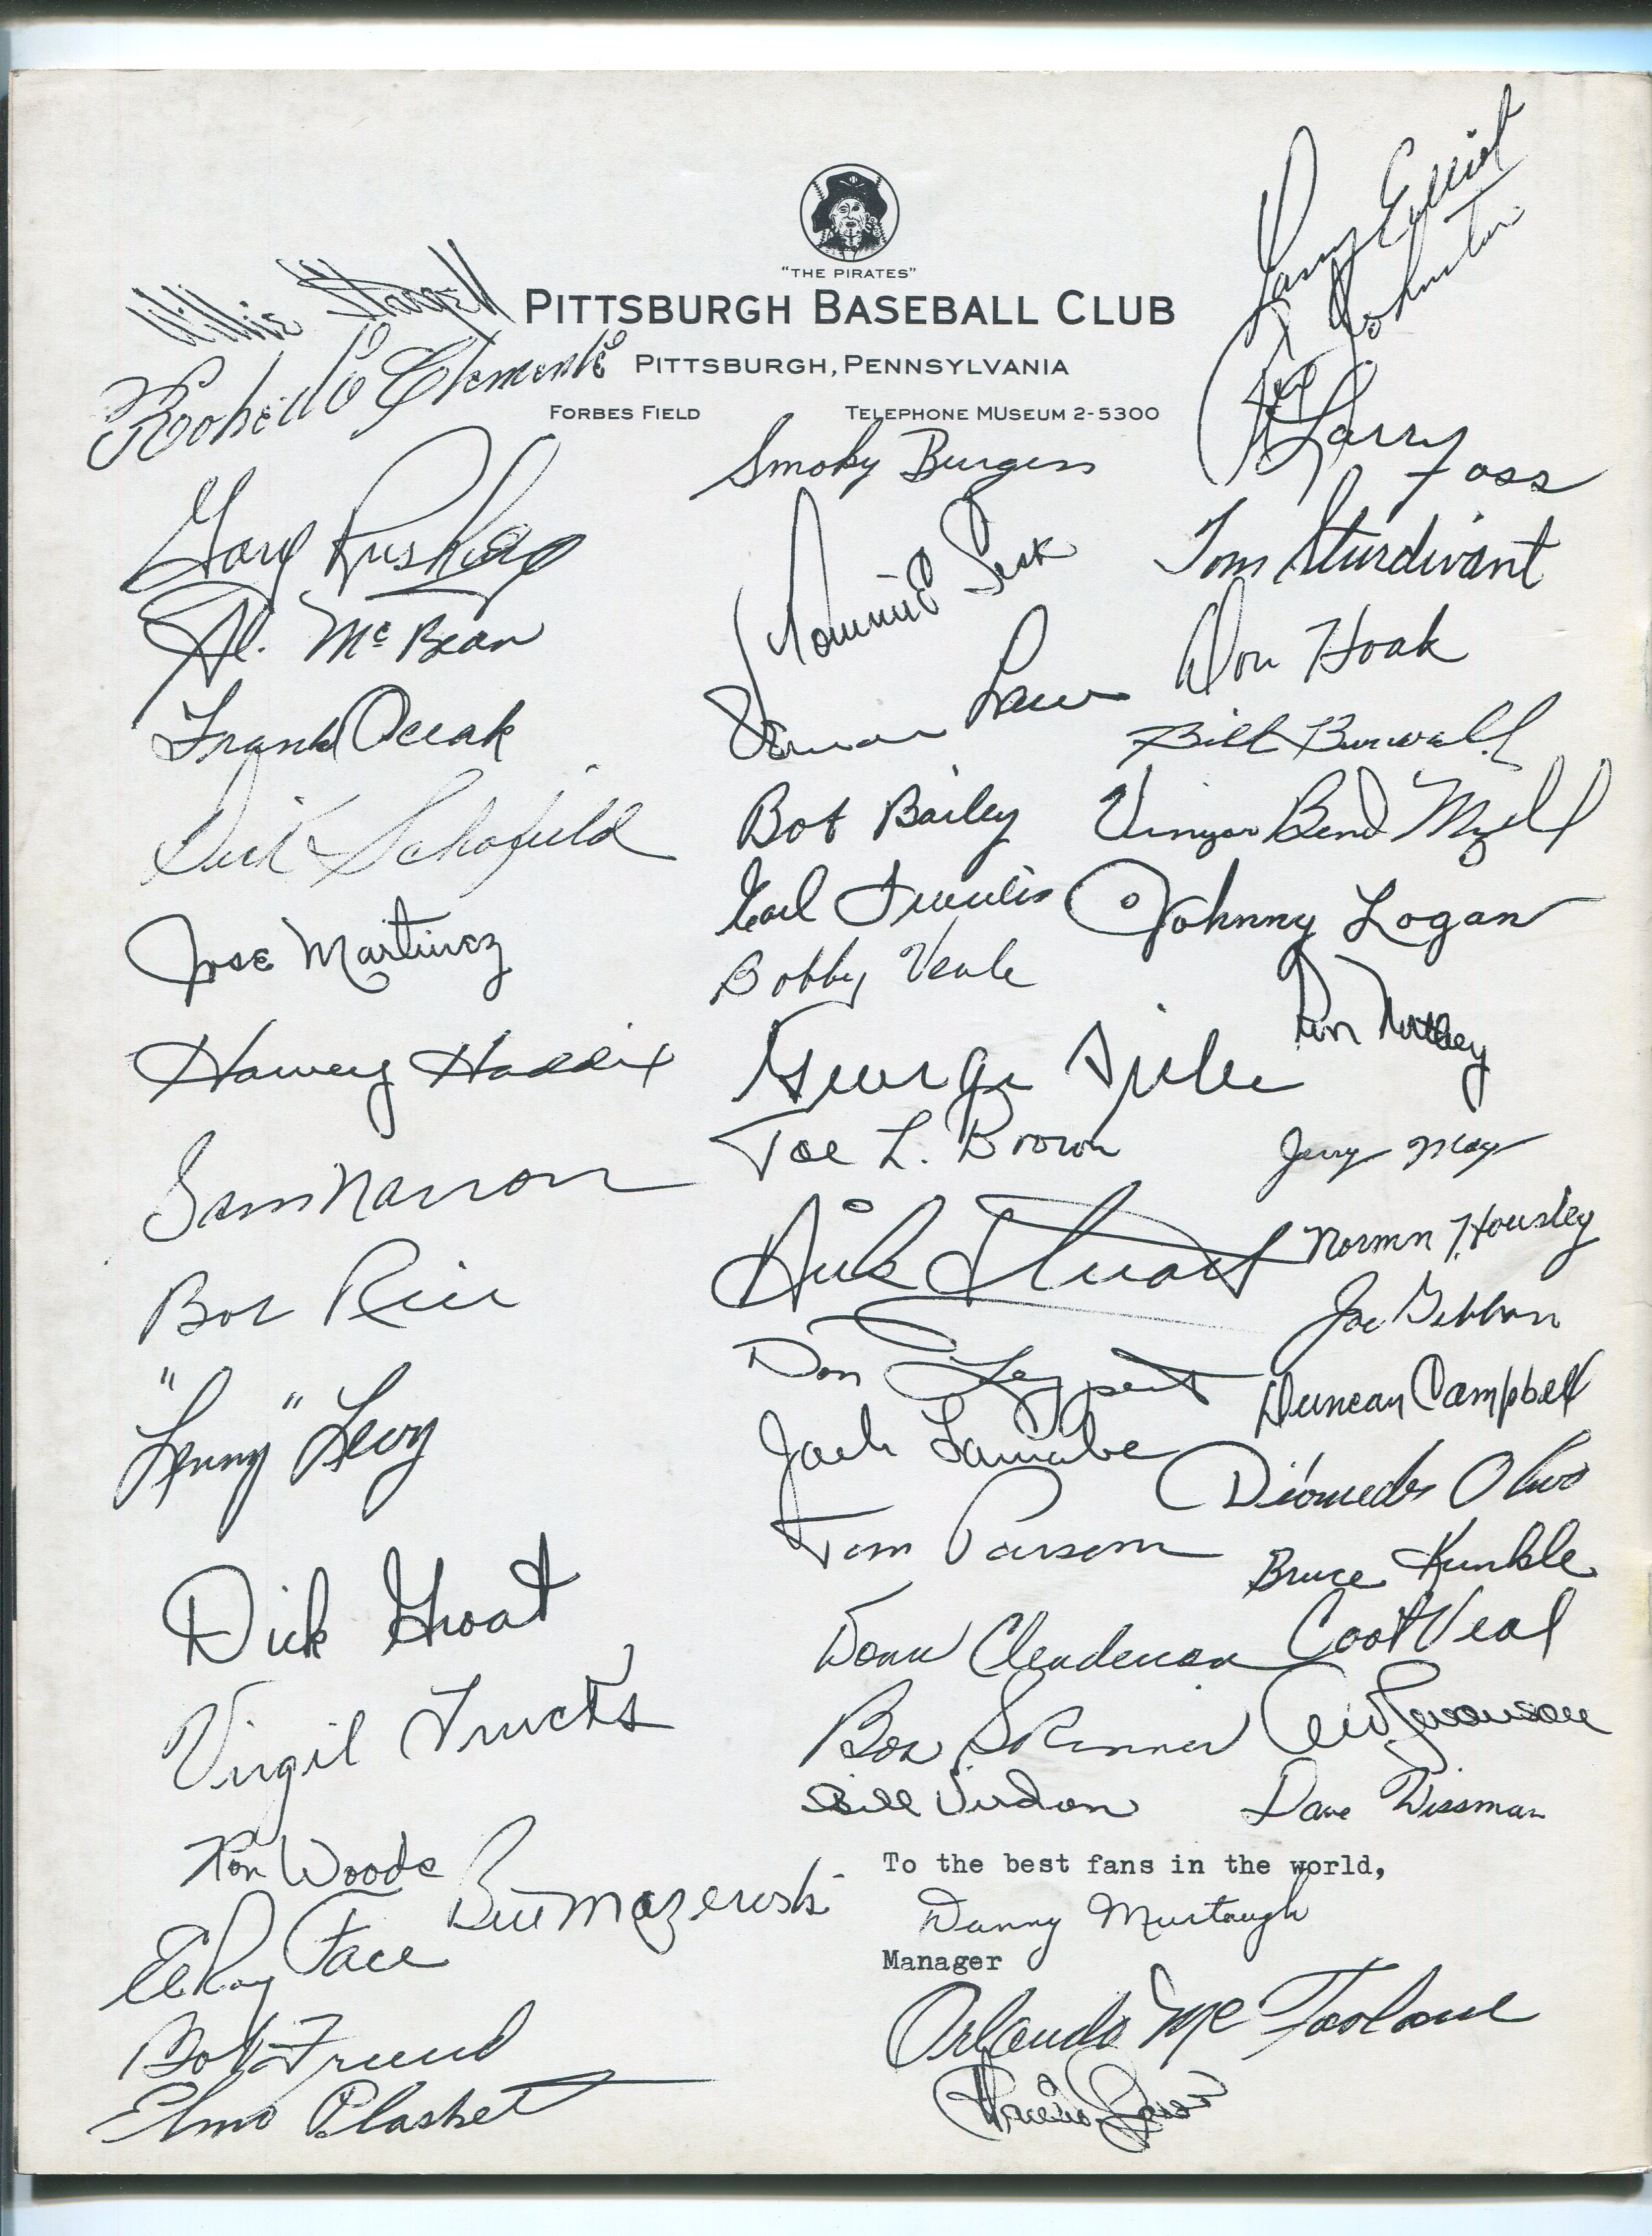 "THE PIRATES"
PITTSBURGH BASEBALL CLUB
PITTSBURGH, PENNSYLVANIA
FORBES FIELD TELEPHONE MUSEUM 2-5300
Larry Elliot
Rex Johnston
Willie Stargell
Roberto Clemente
Larry Foss
Smoky Burgess
Gary Rushing
Tommie Sisk
Tom Sturdivant
Al. McBean
Vernon Law
Don Hoak
Frank Oceak
Bill Burwell
Dick Schofield
Bob Bailey
Vinegar Bend Mizell
Jose Martinez
Earl Francis
Johnny Logan
Bobby Veale
Ron
Harvey Haddix
George Sisler
Joe L. Brown
Jerry May
Sam Narron
Dick Stuart
Norman F. Housley
Bob Rice
Joe Gibbon
Don Leppert
"Lenny" Levy
Duncan Campbell
Jack Lamabe
Diomedes Olivo
Tom Parsons
Dick Groat
Bruce Kunkle
Donn Clendenon
Coot Veal
Virgil Trucks
Bob Skinner
Art Swanson
Bill Virdon
Dave Wissman
Ron Woods
Bill Mazeroski
To the best fans in the world,
Danny Murtaugh
Manager
ElRoy Face
Orlando McFarlane
Bob Friend
Elmo Plaskett